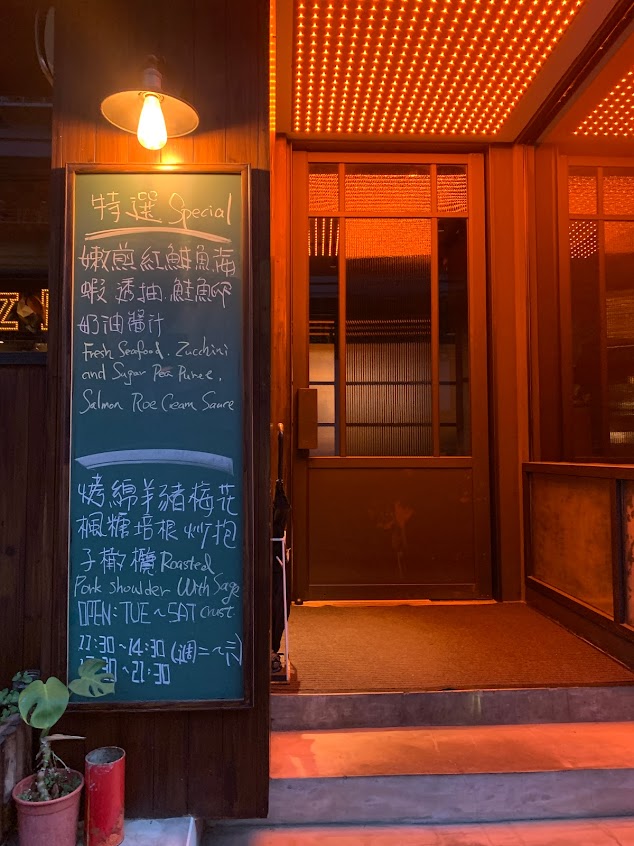 特選 Special
嫩煎紅鮭魚海
蝦 透抽 鮭魚卵
奶油醬汁
Fresh Seafood. Zucchini
and Sugar Pea Puree,
Salmon Roe Cream Sauce
烤綿羊豬梅花
楓糖培根 炒抱
子橄欖 Roasted
Pork shoulder With Sage
OPEN: TUE~SAT crust
11:30~14:30 (週二~六)
:30~21:30